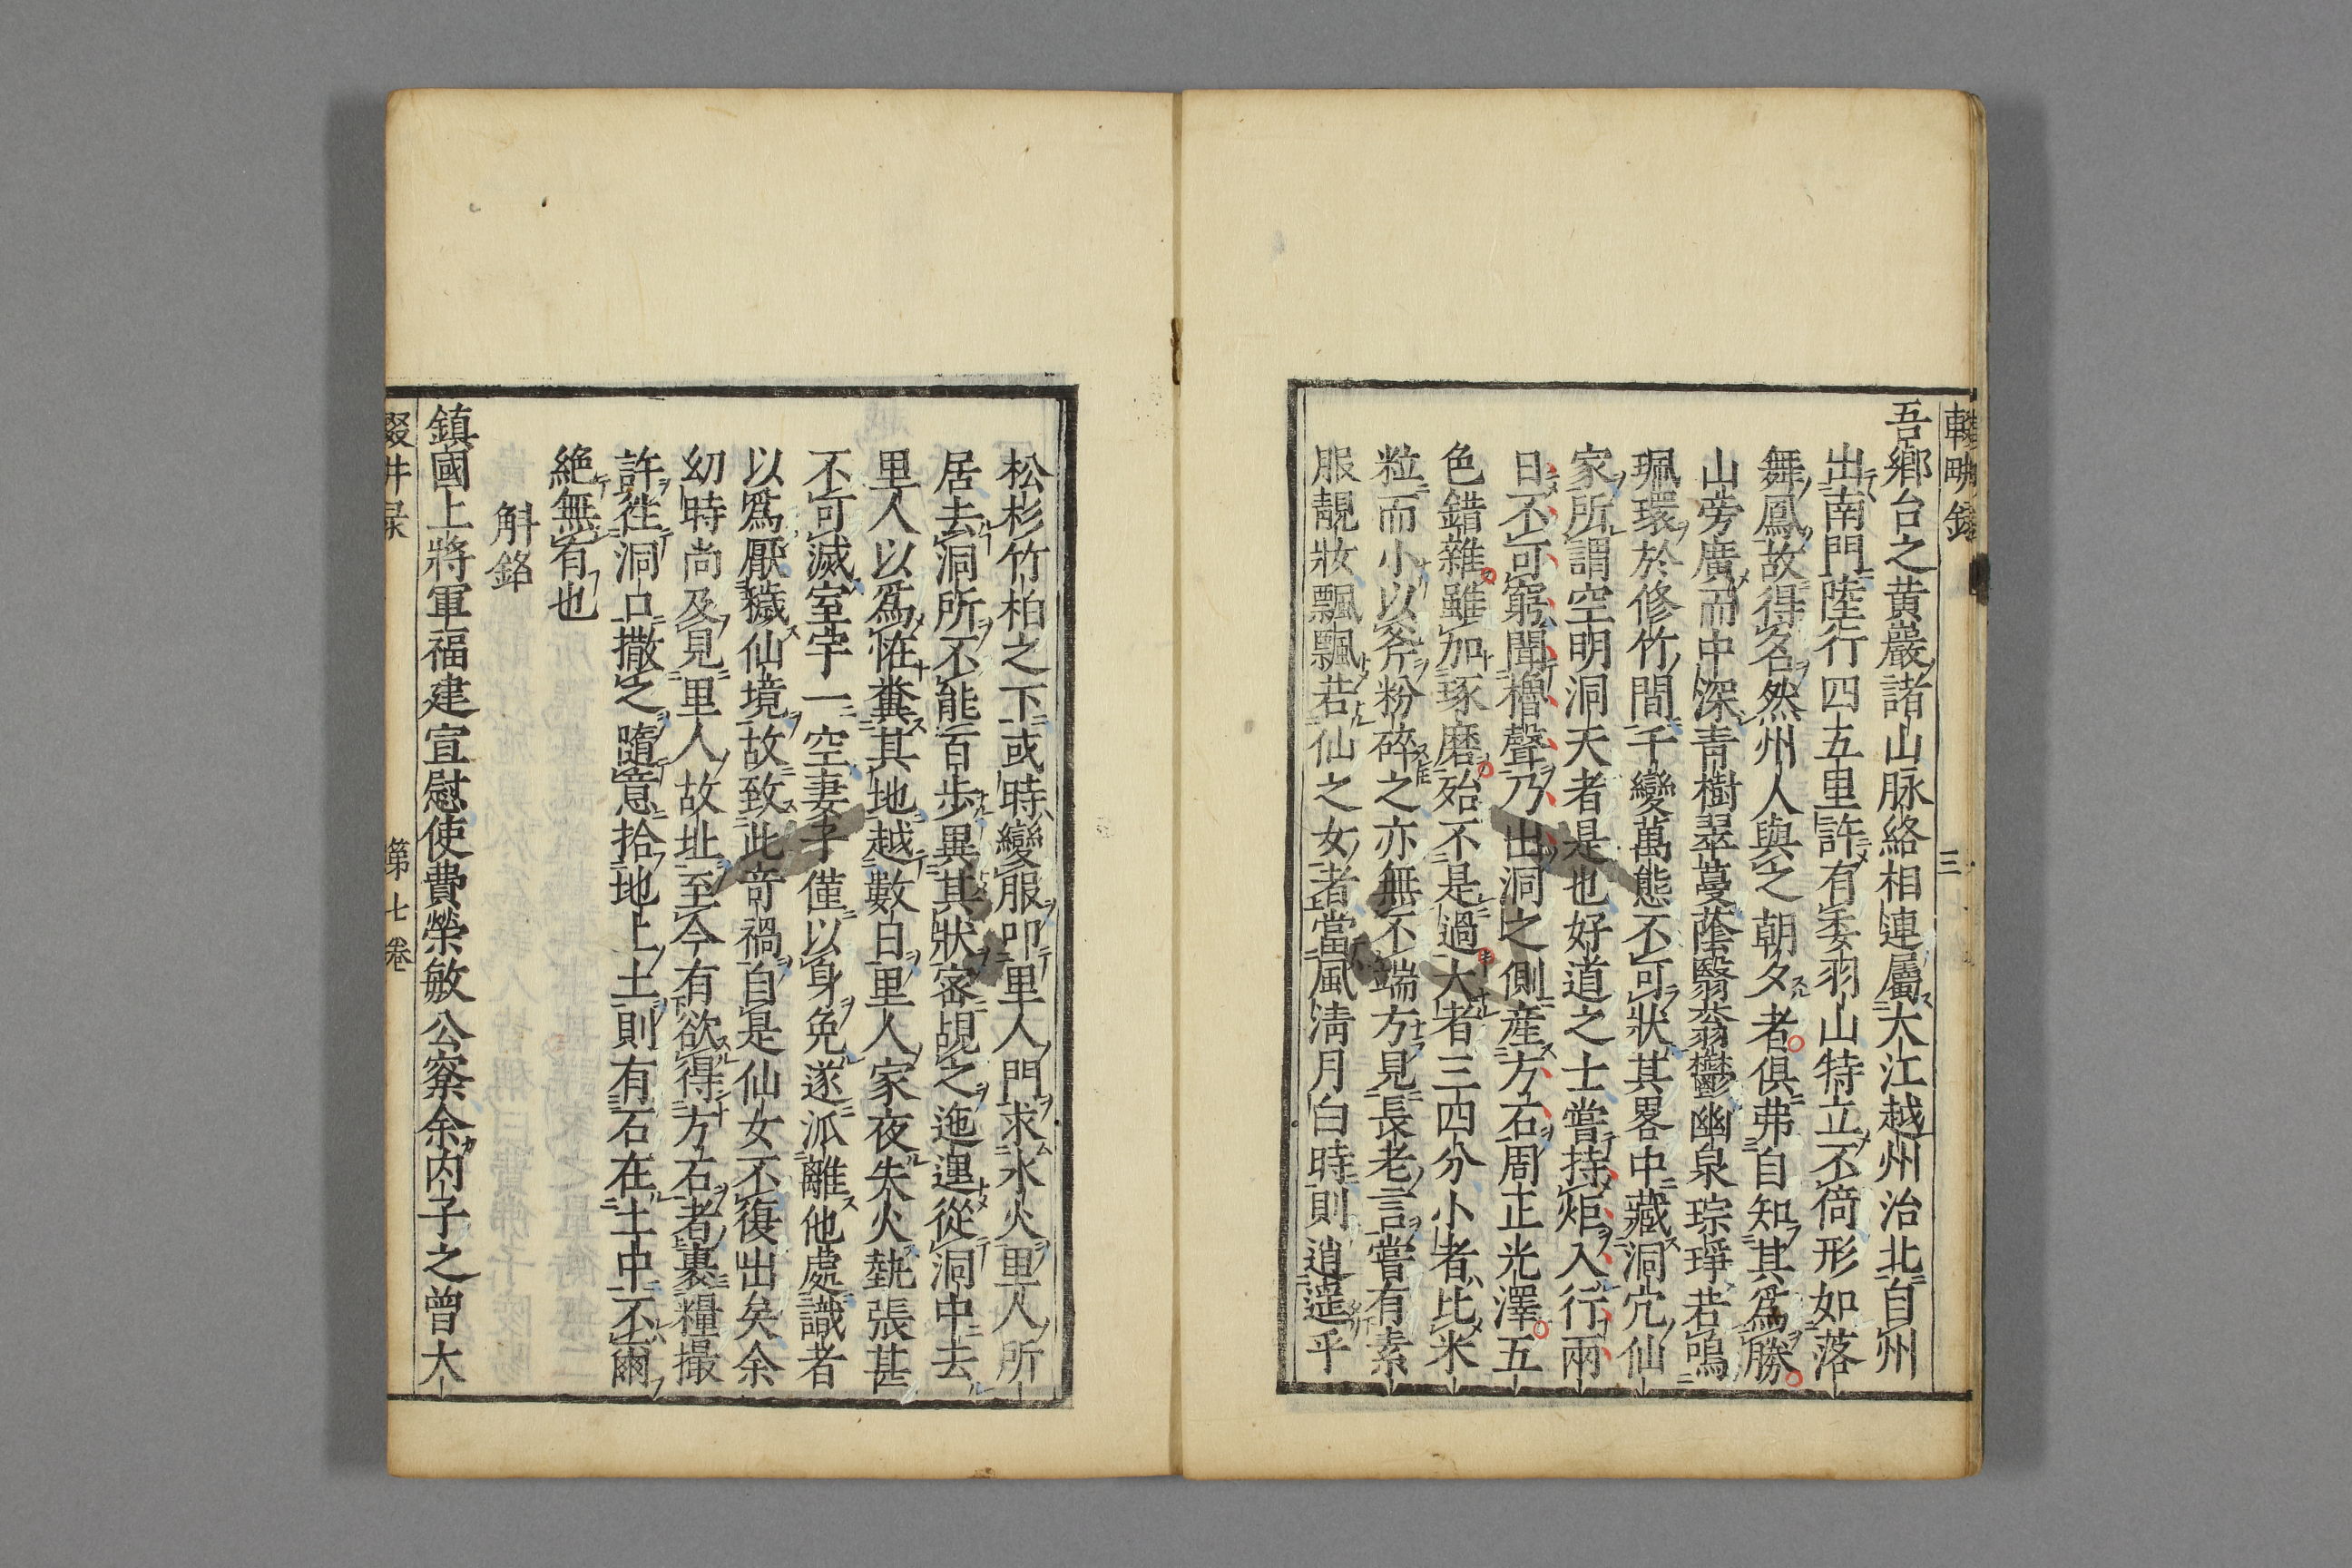 輟畊録
三
吾鄉台之黄巖諸山脉絡相連屬大江越州治北自州
出南門陸行四五里許有委羽山特立不倚形如落
舞鳳故得名然州人與之朝夕者俱弗自知其爲勝
山旁廣而中深青樹翠蔓蔭翳蓊鬱幽泉琮琤若鳴
珮環於修竹間千變萬態不可狀其畧中藏洞穴仙
家所謂空明洞天者是也好道之士嘗持炬入行兩
日不可窮聞櫓聲乃出洞之側産方石周正光澤五
色錯雜雖加琢磨殆不是過大者三四分小者比米
粒而小以斧粉碎之亦無不端方見長老言嘗有素
服靚妝飄飄若仙之女者當風淸月白時則逍遥乎
松杉竹柏之下或時變服叩里人門求水火里人所
居去洞所不能百步異其狀密覘之迤邐從洞中去
里人以爲恠糞其地越數日里人家夜失火𤍠張甚
不可滅室宇一空妻子僅以身免遂泒離他處識者
以爲厭穢仙境故致此竒禍自是仙女不復出矣余
幼時尚及見里人故址至今有欲得方石者裹糧撮
許徃洞口撒之隨意拾地上土則有石在土中不爾
絶無有也
斛銘
鎮國上將軍福建宣慰使費榮敏公寀余内子之曽大
第七卷